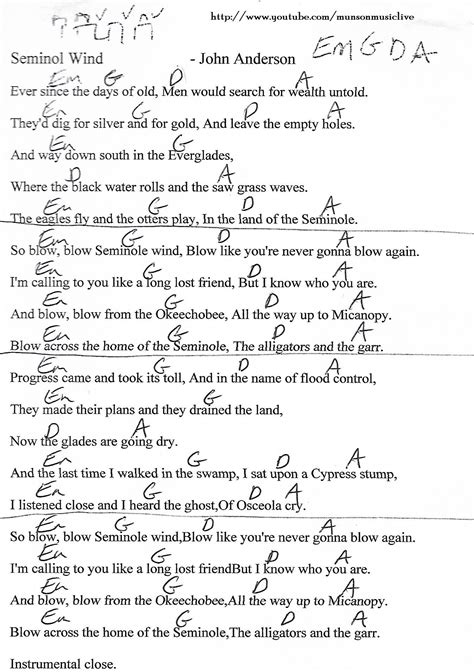 http://www.youtube.com/munsonmusiclive
Seminol Wind - John Anderson Em G D A
Em G D A
Ever since the days of old, Men would search for wealth untold.
Em G D A
They'd dig for silver and for gold, And leave the empty holes.
Em G
And way down south in the Everglades,
D A
Where the black water rolls and the saw grass waves.
Em G D A
The eagles fly and the otters play, In the land of the Seminole.
Em G D A
So blow, blow Seminole wind, Blow like you're never gonna blow again.
Em G D A
I'm calling to you like a long lost friend, But I know who you are.
Em G D A
And blow, blow from the Okeechobee, All the way up to Micanopy.
Em G D A
Blow across the home of the Seminole, The alligators and the garr.
Em G D A
Progress came and took its toll, And in the name of flood control,
Em G
They made their plans and they drained the land,
D A
Now the glades are going dry.
Em G D A
And the last time I walked in the swamp, I sat upon a Cypress stump,
Em G D A
I listened close and I heard the ghost,Of Osceola cry.
Em G D A
So blow, blow Seminole wind,Blow like you're never gonna blow again.
Em G D A
I'm calling to you like a long lost friendBut I know who you are.
Em G D A
And blow, blow from the Okeechobee,All the way up to Micanopy.
Em G D A
Blow across the home of the Seminole,The alligators and the garr.
Instrumental close.